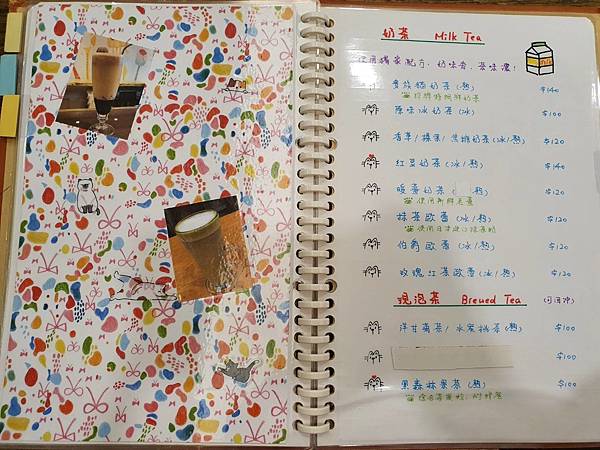 奶茶 Milk Tea
使用獨家配方, 奶味香, 茶味濃!
貴族貓奶茶(熱) $140
原味冰奶茶(冰) $100
香草/榛果/焦糖奶茶(冰/熱) $120
紅豆奶茶(冰/熱) $140
暖薑奶茶(熱) $120
使用新鮮老薑
抹茶歐蕾(冰/熱) $120
使用日本進口抹茶粉
伯爵歐蕾(冰/熱) $120
玫瑰紅茶歐蕾(冰/熱) $120
現泡茶 Brewed Tea (可回沖)
洋甘菊茶/水蜜桃茶(熱) $100
$100
黑森林果茶(熱) $100